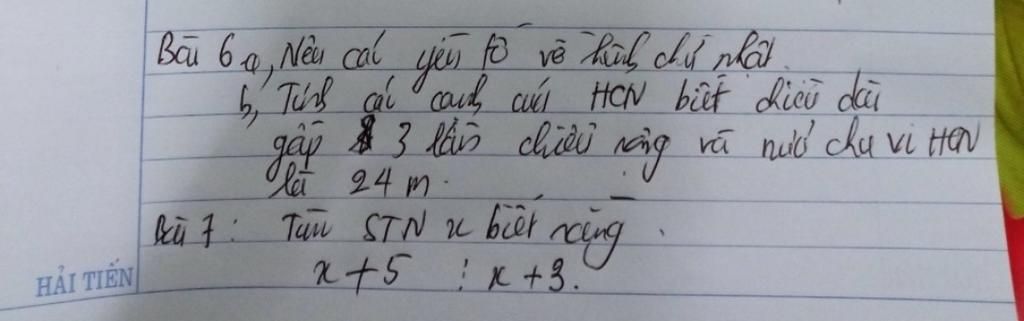 Bài 6 a, Nêu các yếu tố về hình chữ nhật.
b, Tính các cạnh của HCN biết chiều dài
gấp 3 lần chiều rộng và nửa chu vi HCN
là 24 m.
Bài 7: Tìm STN x biết rằng.
x + 5 ⋮ x + 3.
HẢI TIẾN